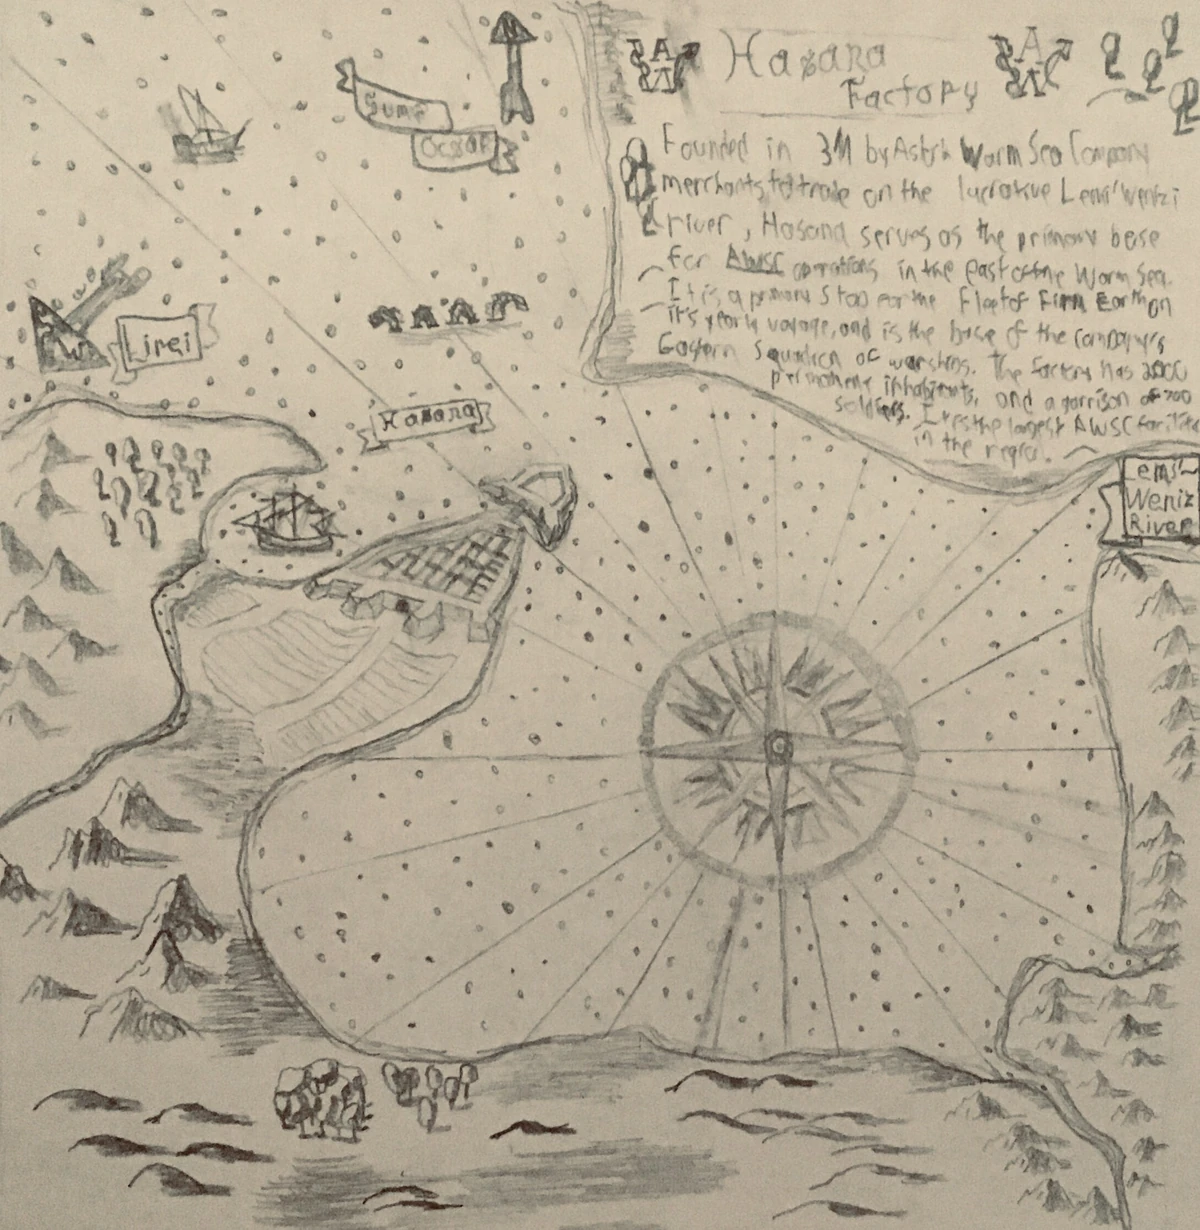 Hasana
Factory
Founded in 3M by Worm Sea Company
merchants to trade on the lucrative Lemi'Wentzi
river, Hasana serves as the primary base
for AWSC operations in the east of the Worm Sea.
It is a primary stop for the Fleet of Firm Earth on
it's yearly voyage, and is the base of the company's
Eastern Squadron of warships. The factory has 2000
permanent inhabitants, and a garrison of 700
soldiers. It is the largest AWSC facility
in the region.
Ocean
Lirei
Hasana
Lemi'-
Weniz
River
W